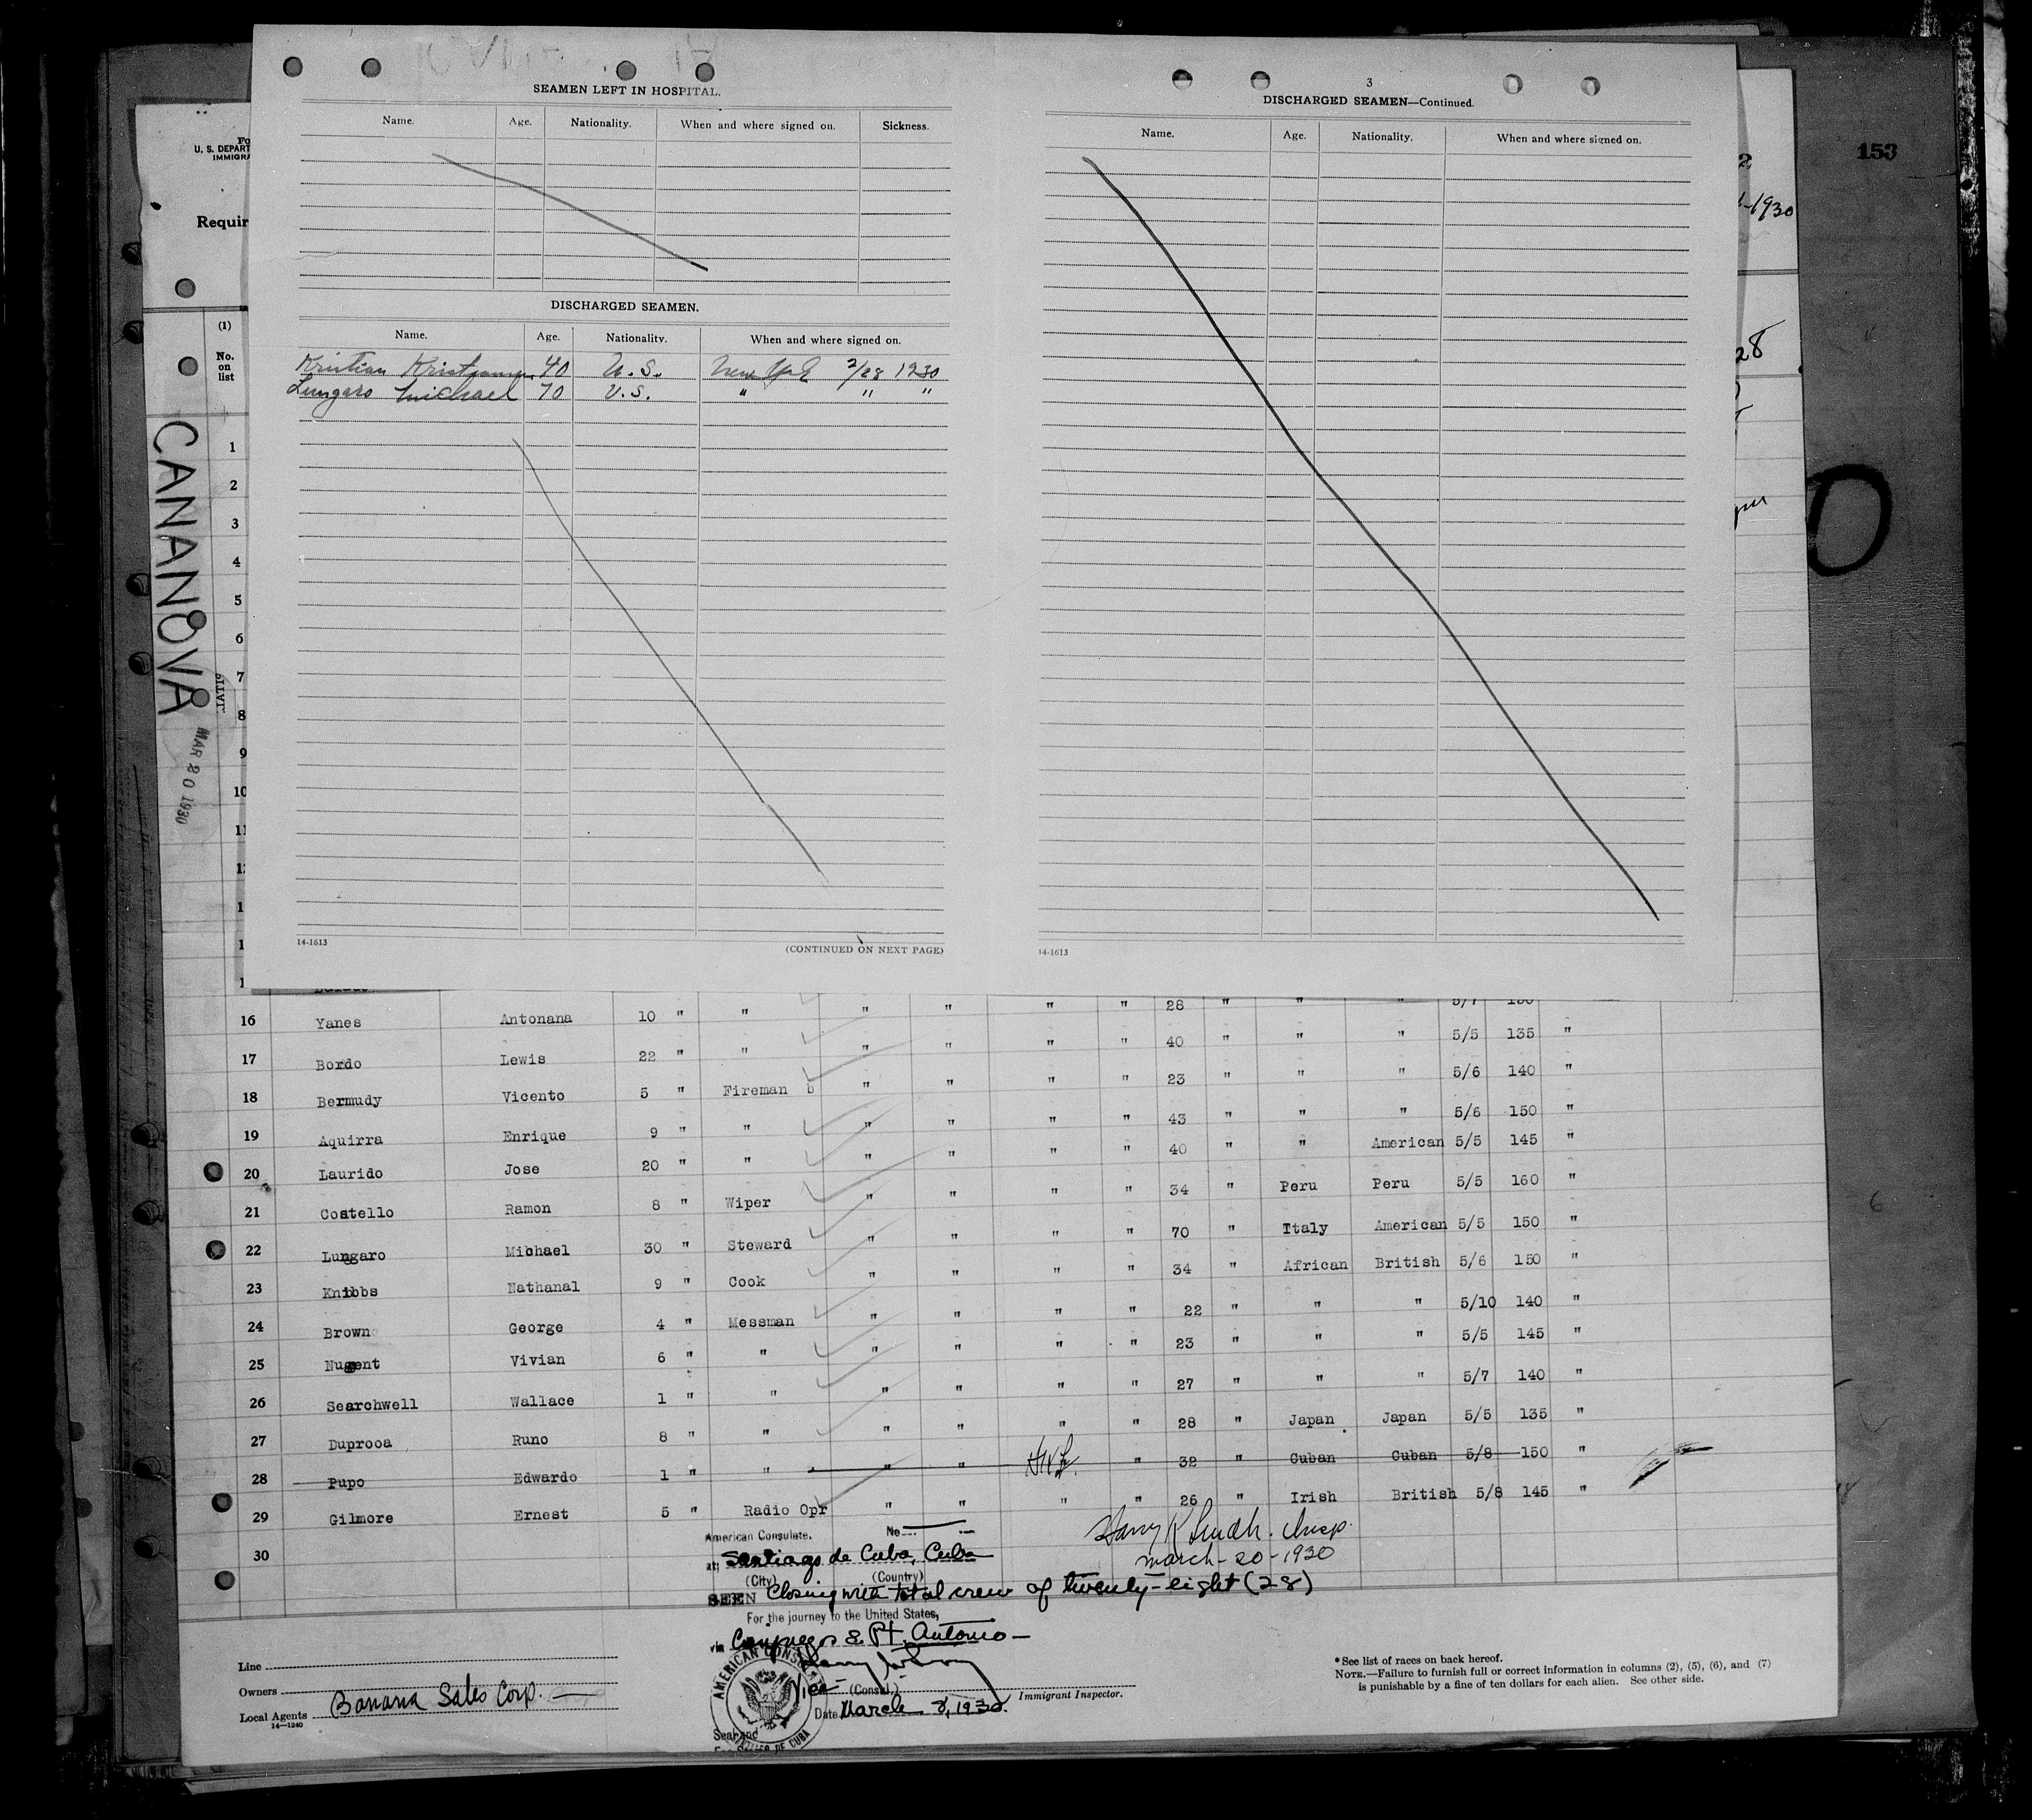 SEAMEN LEFT IN HOSPITAL.
Name. Age. Nationality. When and where signed on. Sickness.
DISCHARGED SEAMEN.
Name. Age. Nationality. When and where signed on.
Kristian 40 U.S. New York 2/28 1930
Lungaro Michael 70 U.S. " " "
14-1613
(CONTINUED ON NEXT PAGE)
3
DISCHARGED SEAMEN—Continued.
Name. Age. Nationality. When and where signed on.
14-1613
153
2
-1930
28
U. S. DEPART
IMMIGRA
Requir
(1)
No.
on
list
CANANOVA
MAR 20 1930
1
2
3
4
5
6
7
8
9
10
11
16 Yanes Antonana 10 " " " " " " 28 " " " 5/7
17 Bordo Lewis 22 " " " " " " 40 " " " 5/5 135 "
18 Bermudy Vicento 5 " Fireman " " " " 23 " " " 5/6 140 "
19 Aquirra Enrique 9 " " " " " " 43 " " " 5/6 150 "
20 Laurido Jose 20 " " " " " " 40 " " American 5/5 145 "
21 Costello Ramon 8 " Wiper " " " " 34 " Peru Peru 5/5 160 "
22 Lungaro Michael 30 " Steward " " " " 70 " Italy American 5/5 150 "
23 Knibbs Nathanal 9 " Cook " " " " 34 " African British 5/6 150 "
24 Brown George 4 " Messman " " " " 22 " " " 5/10 140 "
25 Nugent Vivian 6 " " " " " " 23 " " " 5/5 145 "
26 Searchwell Wallace 1 " " " " " " 27 " " " 5/7 140 "
27 Duprooa Runo 8 " " " " " " 28 " Japan Japan 5/5 135 "
28 Pupo Edwardo 1 " " " " " 32 " Cuban Cuban 5/8 150 "
29 Gilmore Ernest 5 " Radio Opr " " " " 26 " Irish British 5/8 145 "
30
American Consulate. No.
at Santiago de Cuba, Cuba
(City) (Country)
March-20-1930
SEEN Closing with total crew of twenty-eight (28)
For the journey to the United States,
via & Pt. Antonio
(Consul.)
Immigrant Inspector.
Date March 8, 1930.
AMERICAN
Seal and
DE CUBA
Line
Owners
Local Agents Banana Sales Corp.
14-1240
*See list of races on back hereof.
NOTE.—Failure to furnish full or correct information in columns (2), (5), (6), and (7)
is punishable by a fine of ten dollars for each alien. See other side.